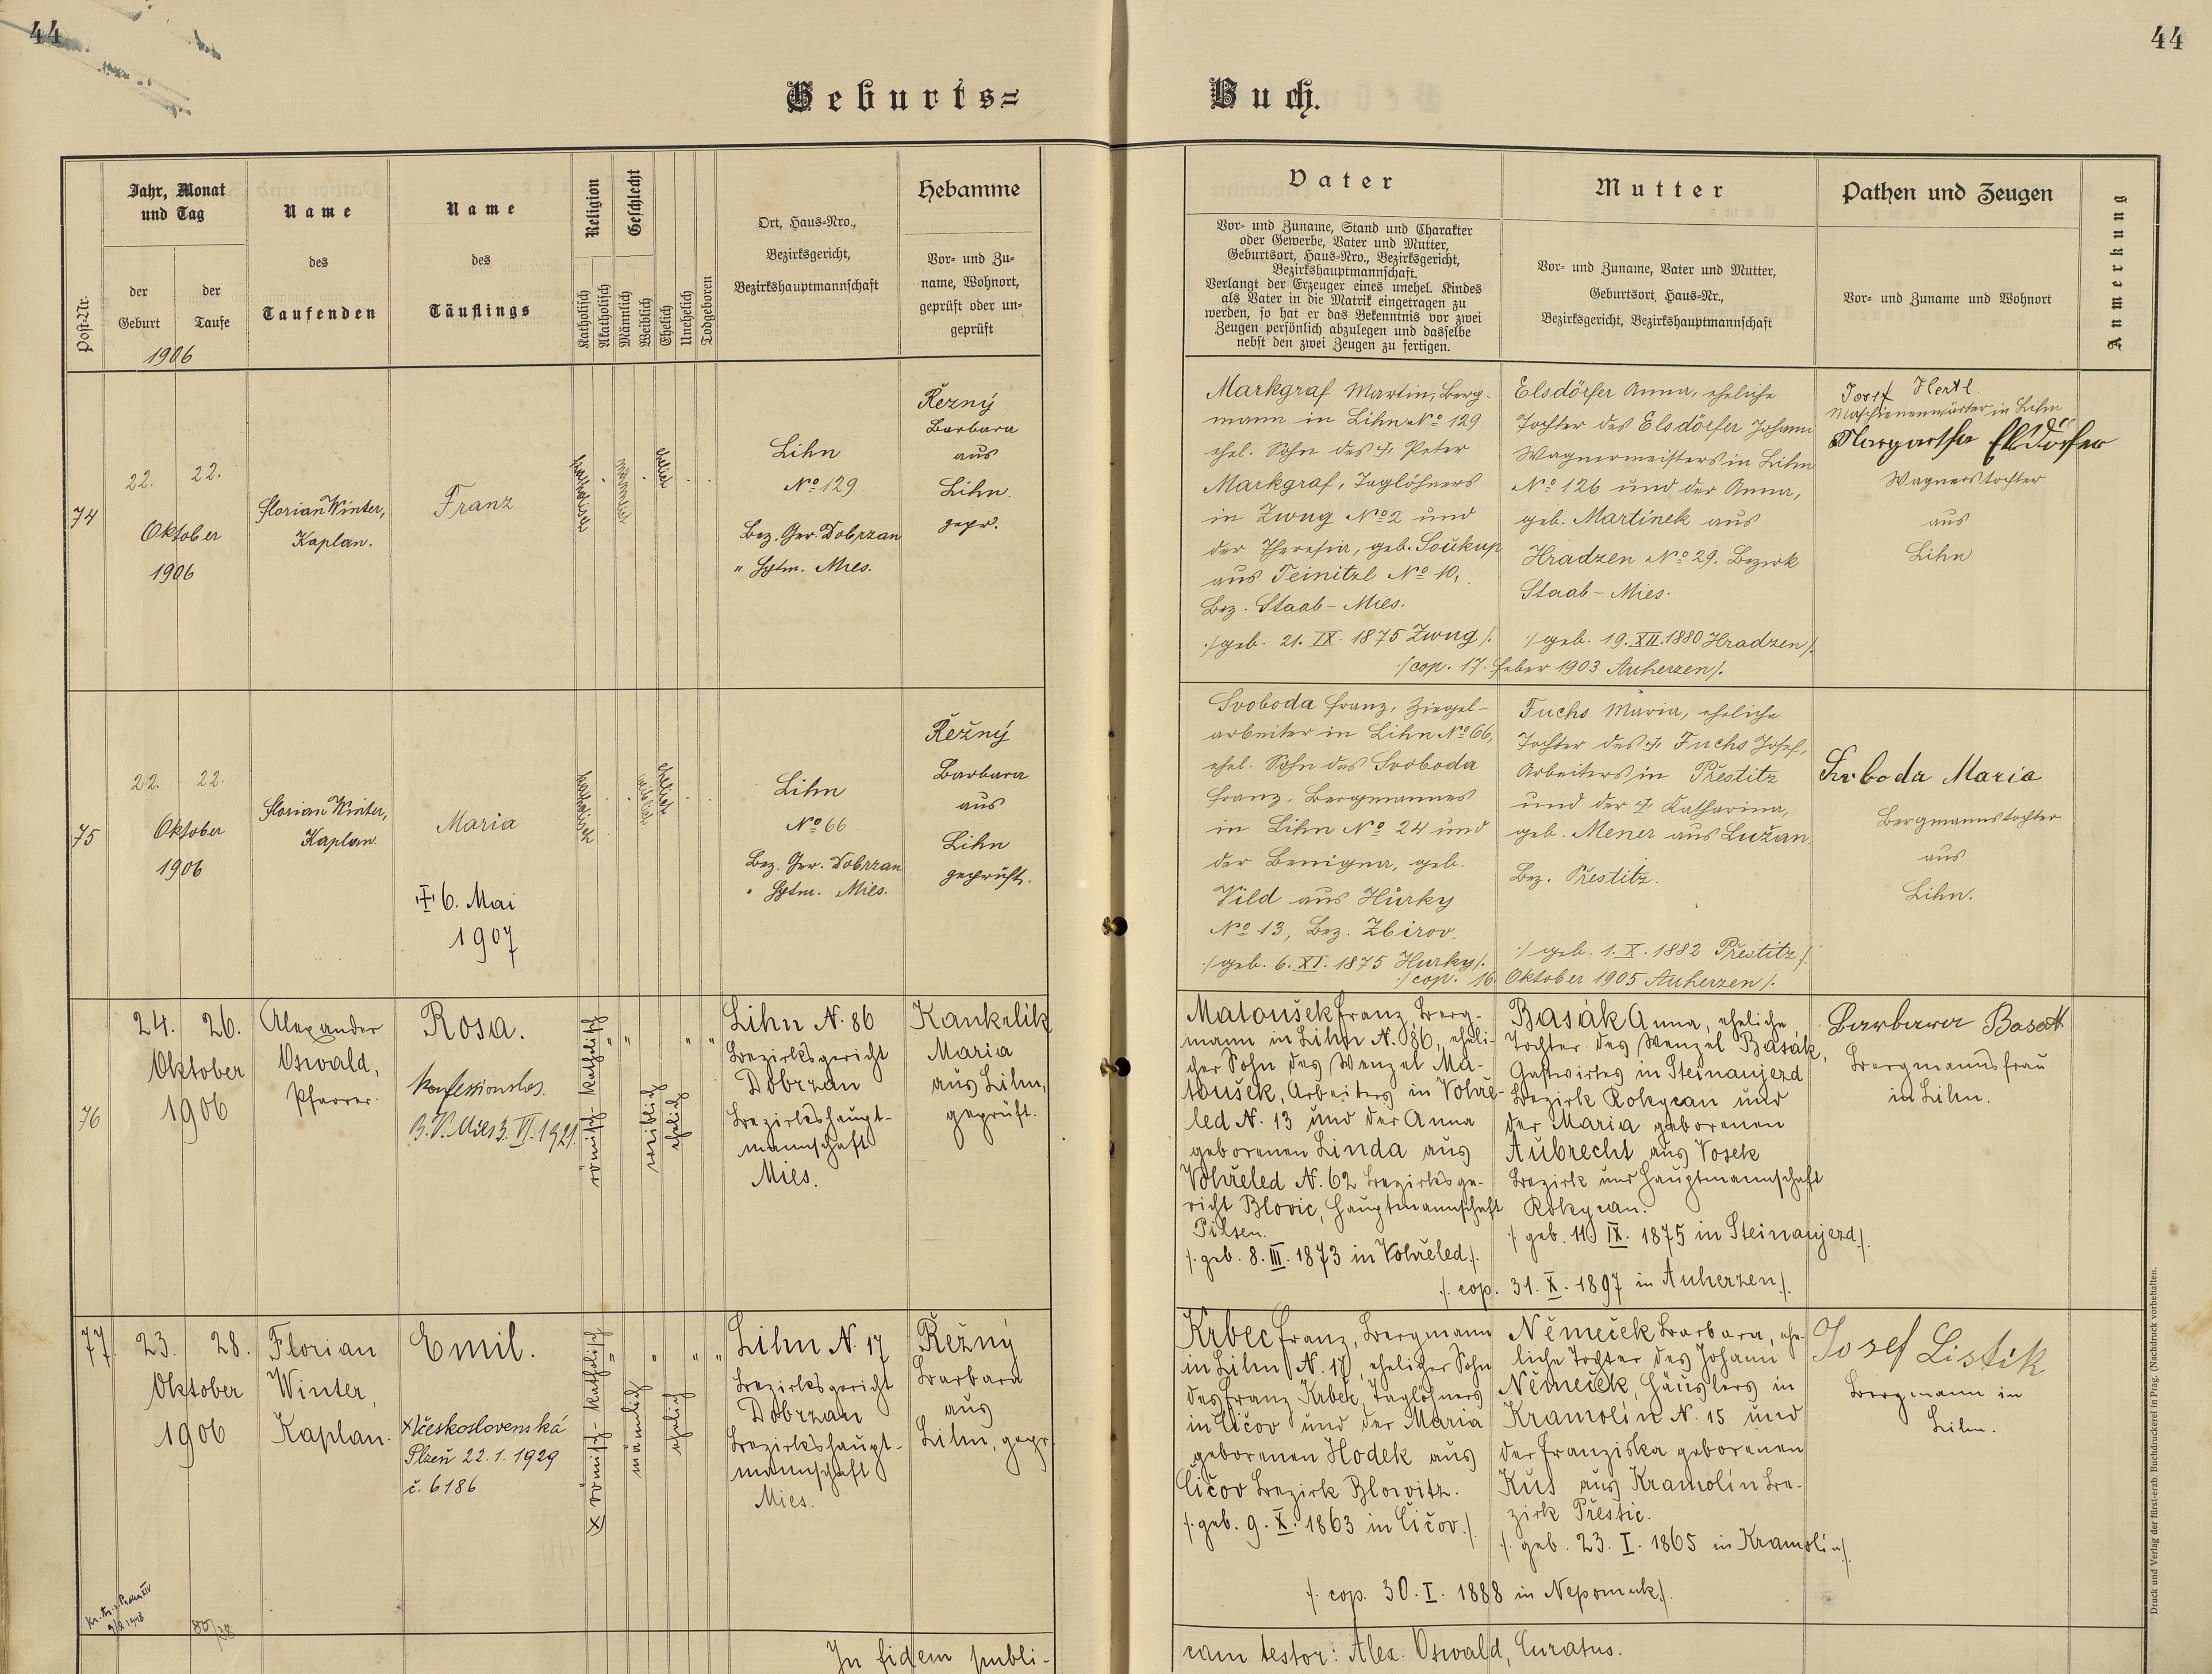 44
44
Geburts=
Buch.
Post-Nr.
Jahr, Monat
und Tag
der
Geburt
der
Taufe
1906
Name
des
Taufenden
Name
des
Täuflings
Religion
Katholisch
Akatholisch
Geschlecht
Männlich
Weiblich
Ehelich
Unehelich
Todgeboren
Ort, Haus-Nro.,
Bezirksgericht,
Bezirkshauptmannschaft
Hebamme
Vor- und Zu-
name, Wohnort,
geprüft oder un-
geprüft
Vater
Vor- und Zuname, Stand und Charakter
oder Gewerbe, Vater und Mutter,
Geburtsort, Haus-Nro., Bezirksgericht,
Bezirkshauptmannschaft.
Verlangt der Erzeuger eines unehel. Kindes
als Vater in die Matrik eingetragen zu
werden, so hat er das Bekenntnis vor zwei
Zeugen persönlich abzulegen und dasselbe
nebst den zwei Zeugen zu fertigen.
Mutter
Vor- und Zuname, Vater und Mutter,
Geburtsort, Haus-Nr.,
Bezirksgericht, Bezirkshauptmannschaft
Pathen und Zeugen
Vor- und Zuname und Wohnort
Anmerkung
74
22. 22.
Oktober
1906
Florian Winter,
Kaplan.
Franz
katholisch
männlich
ehelich
Lihn
No 129
Bez. Ger. Dobrzan
" Hptm. Mies.
Řezný
Barbara
aus
Lihn.
gepr.
Markgraf Martin, Berg-
mann in Lihn No 129
ehel. Sohn des † Peter
Markgraf, Taglöhners
in Zwug No 2 und
der Theresia, geb. Soukup
aus Teinitzl No 10,
Bez. Staab - Mies.
/: geb. 21. IX. 1875 Zwug /.
Elsdörfer Anna, eheliche
Tochter des Elsdörfer Johann
Wagnermeisters in Lihn
No 126 und der Anna,
geb. Martinek aus
Hradzen No 29. Bezirk
Staab - Mies.
/: geb. 19. XII. 1880 Hradzen /.
/cop. 17. Feber 1903 Auherzen /.
Josef Hertl
Maschienenwärter in Lihn
Margaretha Elsdörfer
Wagnerstochter
aus
Lihn
75
22. 22.
Oktober
1906
Florian Winter,
Kaplan.
Maria
† 6. Mai
1907
katholisch
weiblich
ehelich
Lihn
No 66
Bez. Ger. Dobrzan
" Hptm. Mies.
Řežný
Barbara
aus
Lihn
geprüft.
Svoboda Franz, Ziegel-
arbeiter in Lihn No 66,
ehel. Sohn des Svoboda
Franz, Bergmannes
in Lihn No 24 und
der Benigna, geb.
Vild aus Hůrky
No 13, Bez. Zbirov.
/: geb. 6. XI. 1875 Hurky /.
Fuchs Maria, eheliche
Tochter des † Fuchs Josef,
Arbeiters in Přestitz
und der † Katharina,
geb. Mener aus Lužan
Bez. Přestitz.
/: geb. 1. X. 1882 Přestitz /.
/: cop. 16. Oktober 1905 Auherzen /.
Svoboda Maria
Bergmannstochter
aus
Lihn.
76
24. 26.
Oktober
1906
Alexander
Oswald,
Pfarrer.
Rosa.
Konfessionslos.
B. V. Mies 3. VI. 1921.
römisch katholisch
weiblich
ehelich
Lihn N. 86
Bezirksgericht
Dobrzan
Bezirkshaupt-
mannschaft
Mies.
Kankrlik
Maria
aus Lihn,
geprüft.
Matoušek Franz, Berg-
mann in Lihn N. 86, eheli-
cher Sohn des Wenzel Ma-
toušek, Arbeiters in Vohře-
led N. 13 und der Anna
geborenen Linda aus
Vohřeled N. 62 Bezirksge-
richt Blovic, Hauptmannschaft
Pilsen.
/. geb. 8. III. 1873 in Vohřeled /.
Basák Anna, eheliche
Tochter des Wenzel Basák,
Gastwirtes in Steinaujezd
Bezirk Rokycan und
der Maria geborenen
Aubrecht aus Vosek
Bezirk und Hauptmannschaft
Rokycan.
/. geb. 11. IX. 1875 in Steinaujezd /.
/. cop. 31. X. 1897 in Auherzen /.
Barbara Basak
Bergmannsfrau
in Lihn.
77.
23. 28.
Oktober
1906
Florian
Winter,
Kaplan.
Emil.
x) československá
Plzeň 22.1.1929
č. 6186
x) römisch-katholisch
männlich
ehelich
Lihn N. 17
Bezirksgericht
Dobrzan
Bezirkshaupt-
mannschaft
Mies.
Řežný
Barbara
aus
Lihn, gepr.
Krbec Franz, Bergmann
in Lihn N. 17, ehelicher Sohn
des Franz Krbec, Taglöhners
in Čičov und der Maria
geborenen Hodek aus
Čičov Bezirk Blowitz.
/. geb. 9. X. 1863 in Čičov /.
Němeček Barbara, ehe-
liche Tochter des Johann
Němeček, Häuslers in
Kramolín N. 15 und
der Franziska geborenen
Kůs aus Kramolín Be-
zirk Přestic.
/. geb. 23. I. 1865 in Kramolín /.
/. cop. 30. I. 1888 in Nepomuk /.
Josef Listík
Bergmann in
Lihn.
80/28
In fidem publi-
cam testor: Alex. Oswald, Curatus.
Druck und Verlag der fürst-erzb. Buchdruckerei in Prag. (Nachdruck vorbehalten.